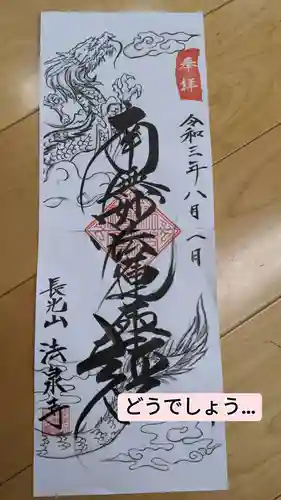 奉拝
令和三年八月一日
南無妙法蓮華経
長光山
法泉寺
どうでしょう…